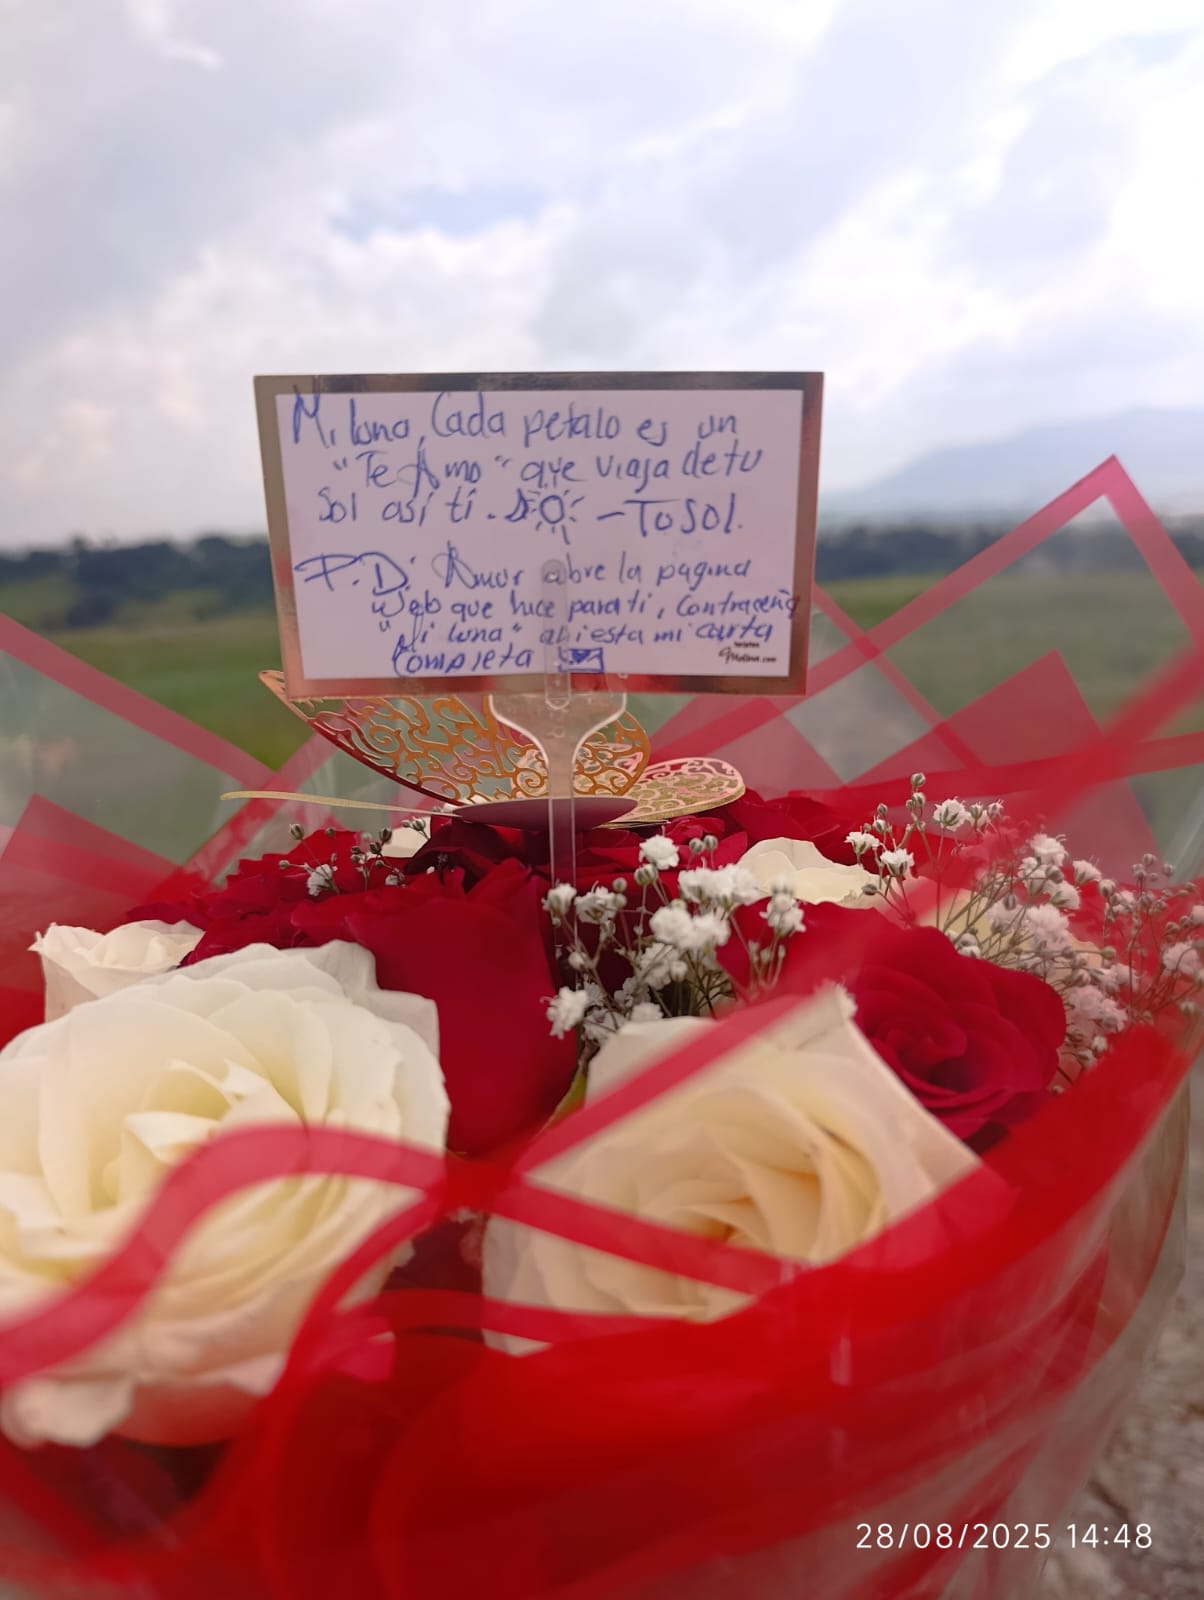 Mi luna, Cada petalo es un
"Te Amo" que viaja de tu
Sol asi ti. - Tu SOl.
P.D: Amor abre la pagina
Web que hice para ti, Contraceña
"Mi luna" ahi esta mi carta
Completa
28/08/2025 14:48